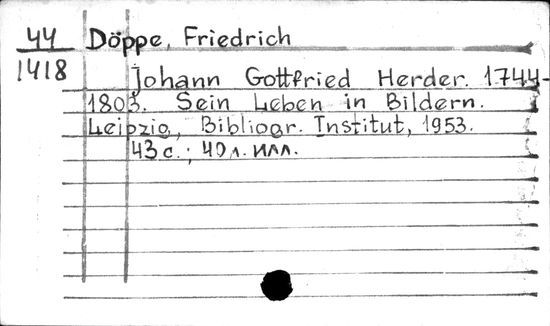 44 Döppe, Friedrich
1418
Johann Gottfried Herder. 1744-
1803. Sein Leben in Bildern.
Leipzig, Bibliogr. Institut, 1953.
43 с.; 40 л. илл.